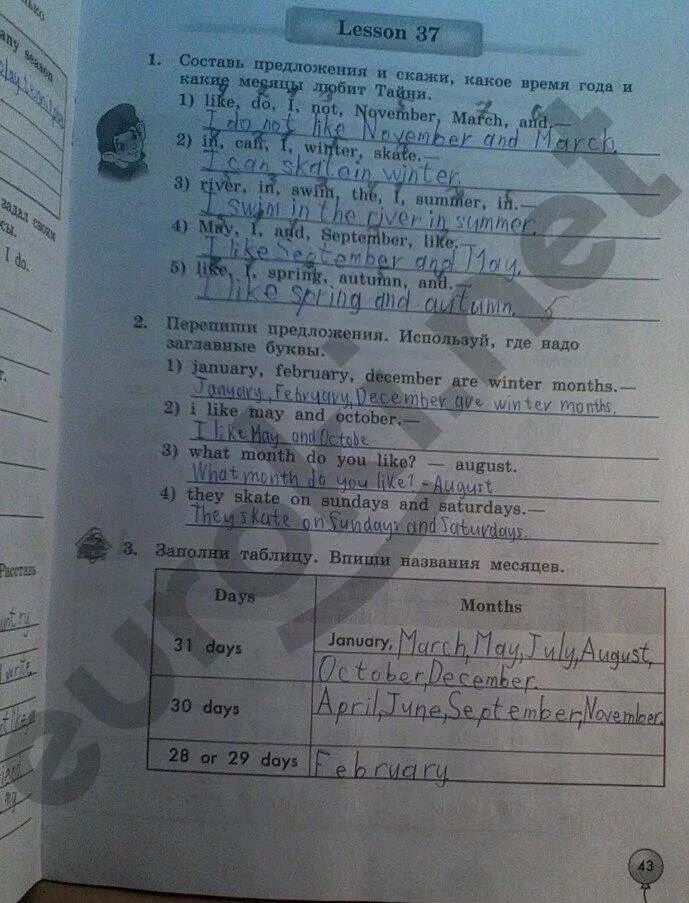 Lesson 37
any season
1. Составь предложения и скажи, какое время года и
какие месяцы любит Тайни.
1) like, do, I, not, November, March, and.—
I do not like November and March.
2) in, can, I, winter, skate.—
I can skate in winter.
3) river, in, swim, the, I, summer, in.—
I swim in the river in summer.
4) May, I, and, September, like.—
I like September and May.
5) like, I, spring, autumn, and.—
I like spring and autumn. 5
задал своим
I do.
2. Перепиши предложения. Используй, где надо
заглавные буквы.
1) january, february, december are winter months.—
January, February, December are winter months.
2) i like may and october.—
I like May and Octobe
3) what month do you like? — august.
What month do you like? - August
4) they skate on sundays and saturdays.—
They skate on Sundays and Saturdays.
3. Заполни таблицу. Впиши названия месяцев.
Расставь
Days Months
31 days January, March, May, July, August,
October, December.
30 days April, June, September, November.
28 or 29 days February
write
my
43